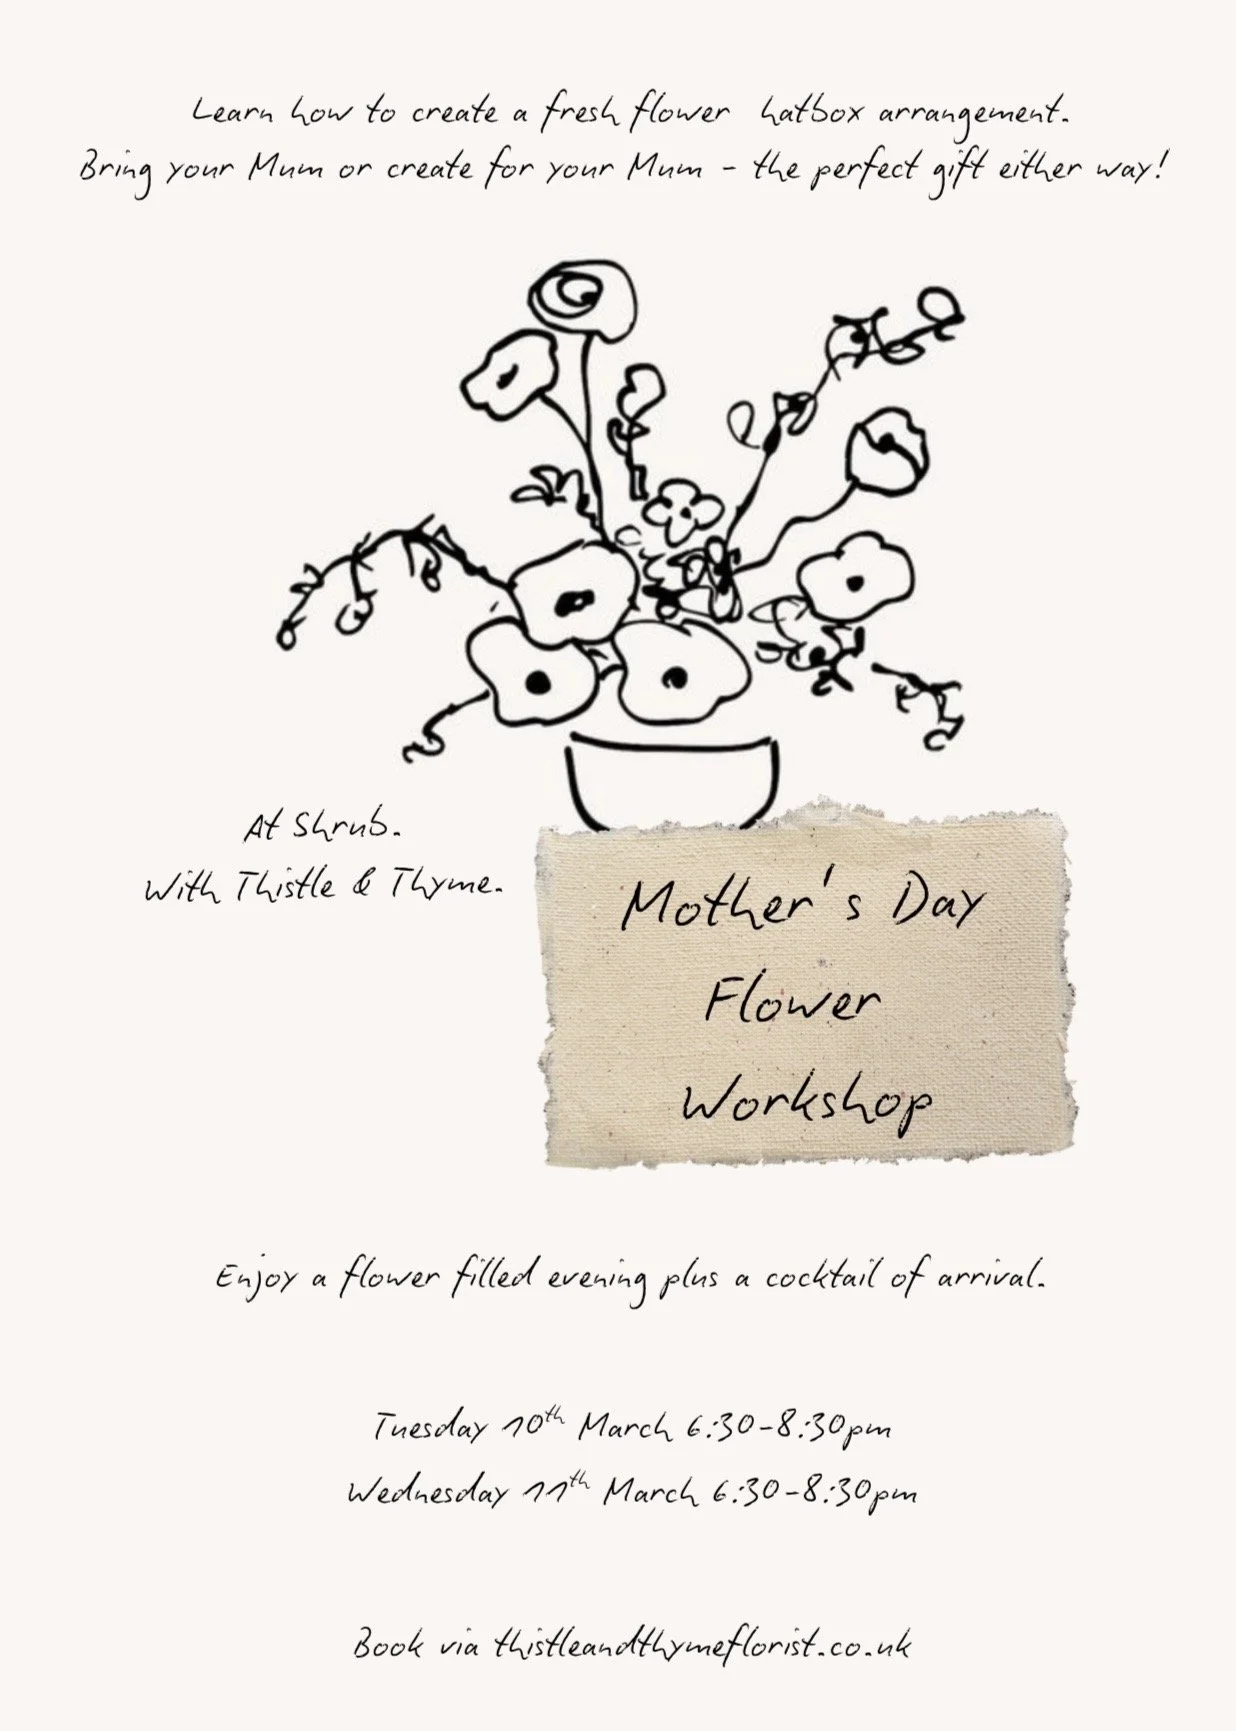 Learn how to create a fresh flower hatbox arrangement.
Bring your Mum or create for your Mum - the perfect gift either way!
At Shrub.
With Thistle & Thyme.
Mother's Day
Flower
Workshop
Enjoy a flower filled evening plus a cocktail of arrival.
Tuesday 10th March 6:30-8:30pm
Wednesday 11th March 6:30-8:30pm
Book via thistleandthymeflorist.co.uk